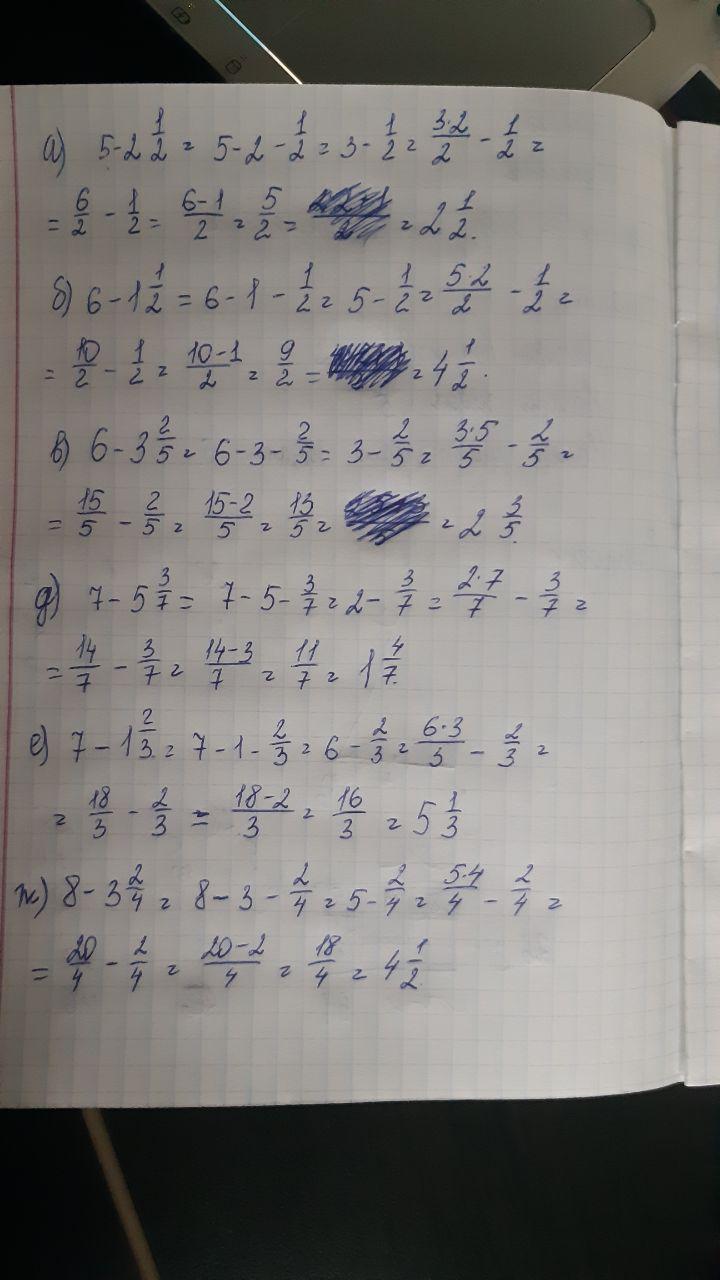 а) 5-2 1/2 = 5-2-1/2 = 3-1/2 = 3·2/2 - 1/2 =
= 6/2 - 1/2 = 6-1/2 = 5/2 = = 2 1/2.
б) 6-1 1/2 = 6-1-1/2 = 5-1/2 = 5·2/2 - 1/2 =
= 10/2 - 1/2 = 10-1/2 = 9/2 = = 4 1/2.
в) 6-3 2/5 = 6-3-2/5 = 3-2/5 = 3·5/5 - 2/5 =
= 15/5 - 2/5 = 15-2/5 = 13/5 = = 2 3/5.
д) 7-5 3/7 = 7-5-3/7 = 2-3/7 = 2·7/7 - 3/7 =
= 14/7 - 3/7 = 14-3/7 = 11/7 = 1 4/7.
е) 7-1 2/3 = 7-1-2/3 = 6-2/3 = 6·3/3 - 2/3 =
= 18/3 - 2/3 = 18-2/3 = 16/3 = 5 1/3
ж) 8-3 2/4 = 8-3-2/4 = 5-2/4 = 5·4/4 - 2/4 =
= 20/4 - 2/4 = 20-2/4 = 18/4 = 4 1/2